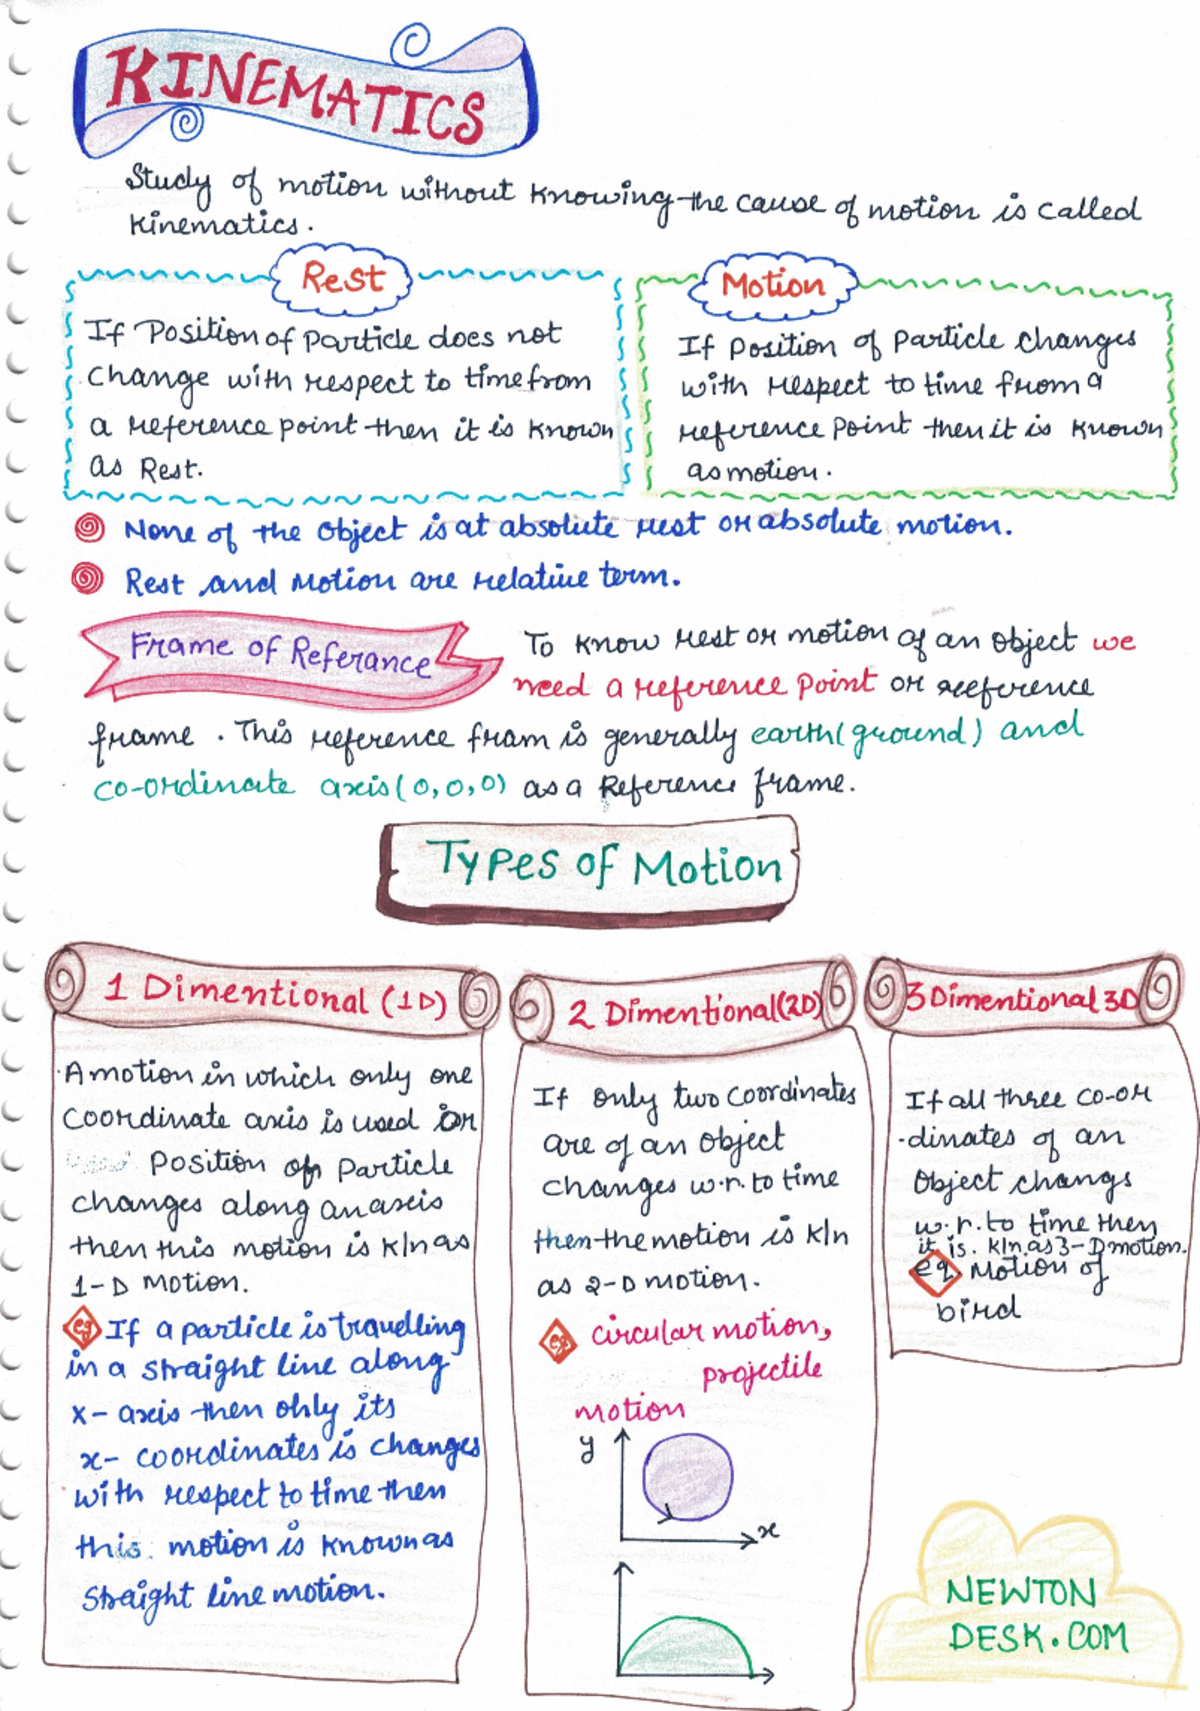 KINEMATICS
Study of motion without knowing the cause of motion is called
kinematics.
Rest
If Position of Particle does not
change with respect to time from
a reference point then it is known
as Rest.
Motion
If position of particle changes
with respect to time from a
reference point then it is known
as motion.
None of the object is at absolute rest or absolute motion.
Rest and Motion are relative term.
Frame of Referance
To know rest or motion of an object we
need a reference point or reeference
frame. This reference fram is generally earth(ground) and
co-ordinate axis(0,0,0) as a Reference frame.
Types of Motion
1 Dimentional (1D)
A motion in which only one
coordinate axis is used or
position of particle
changes along an axis
then this motion is k/n as
1-D Motion.
eg If a particle is travelling
in a straight line along
x-axis then only its
x- coordinates is changes
with respect to time then
this motion is known as
straight line motion.
2 Dimentional(2D)
If only two coordinates
are of an object
changes w.r. to time
then the motion is k/n
as 2-D motion.
eg circular motion,
projectile
motion
y
x
3 Dimentional 3D
If all three co-or
-dinates of an
object changs
w.r. to time then
it is. k/n as 3-D motion.
eg. Motion of
bird
NEWTON
DESK.COM